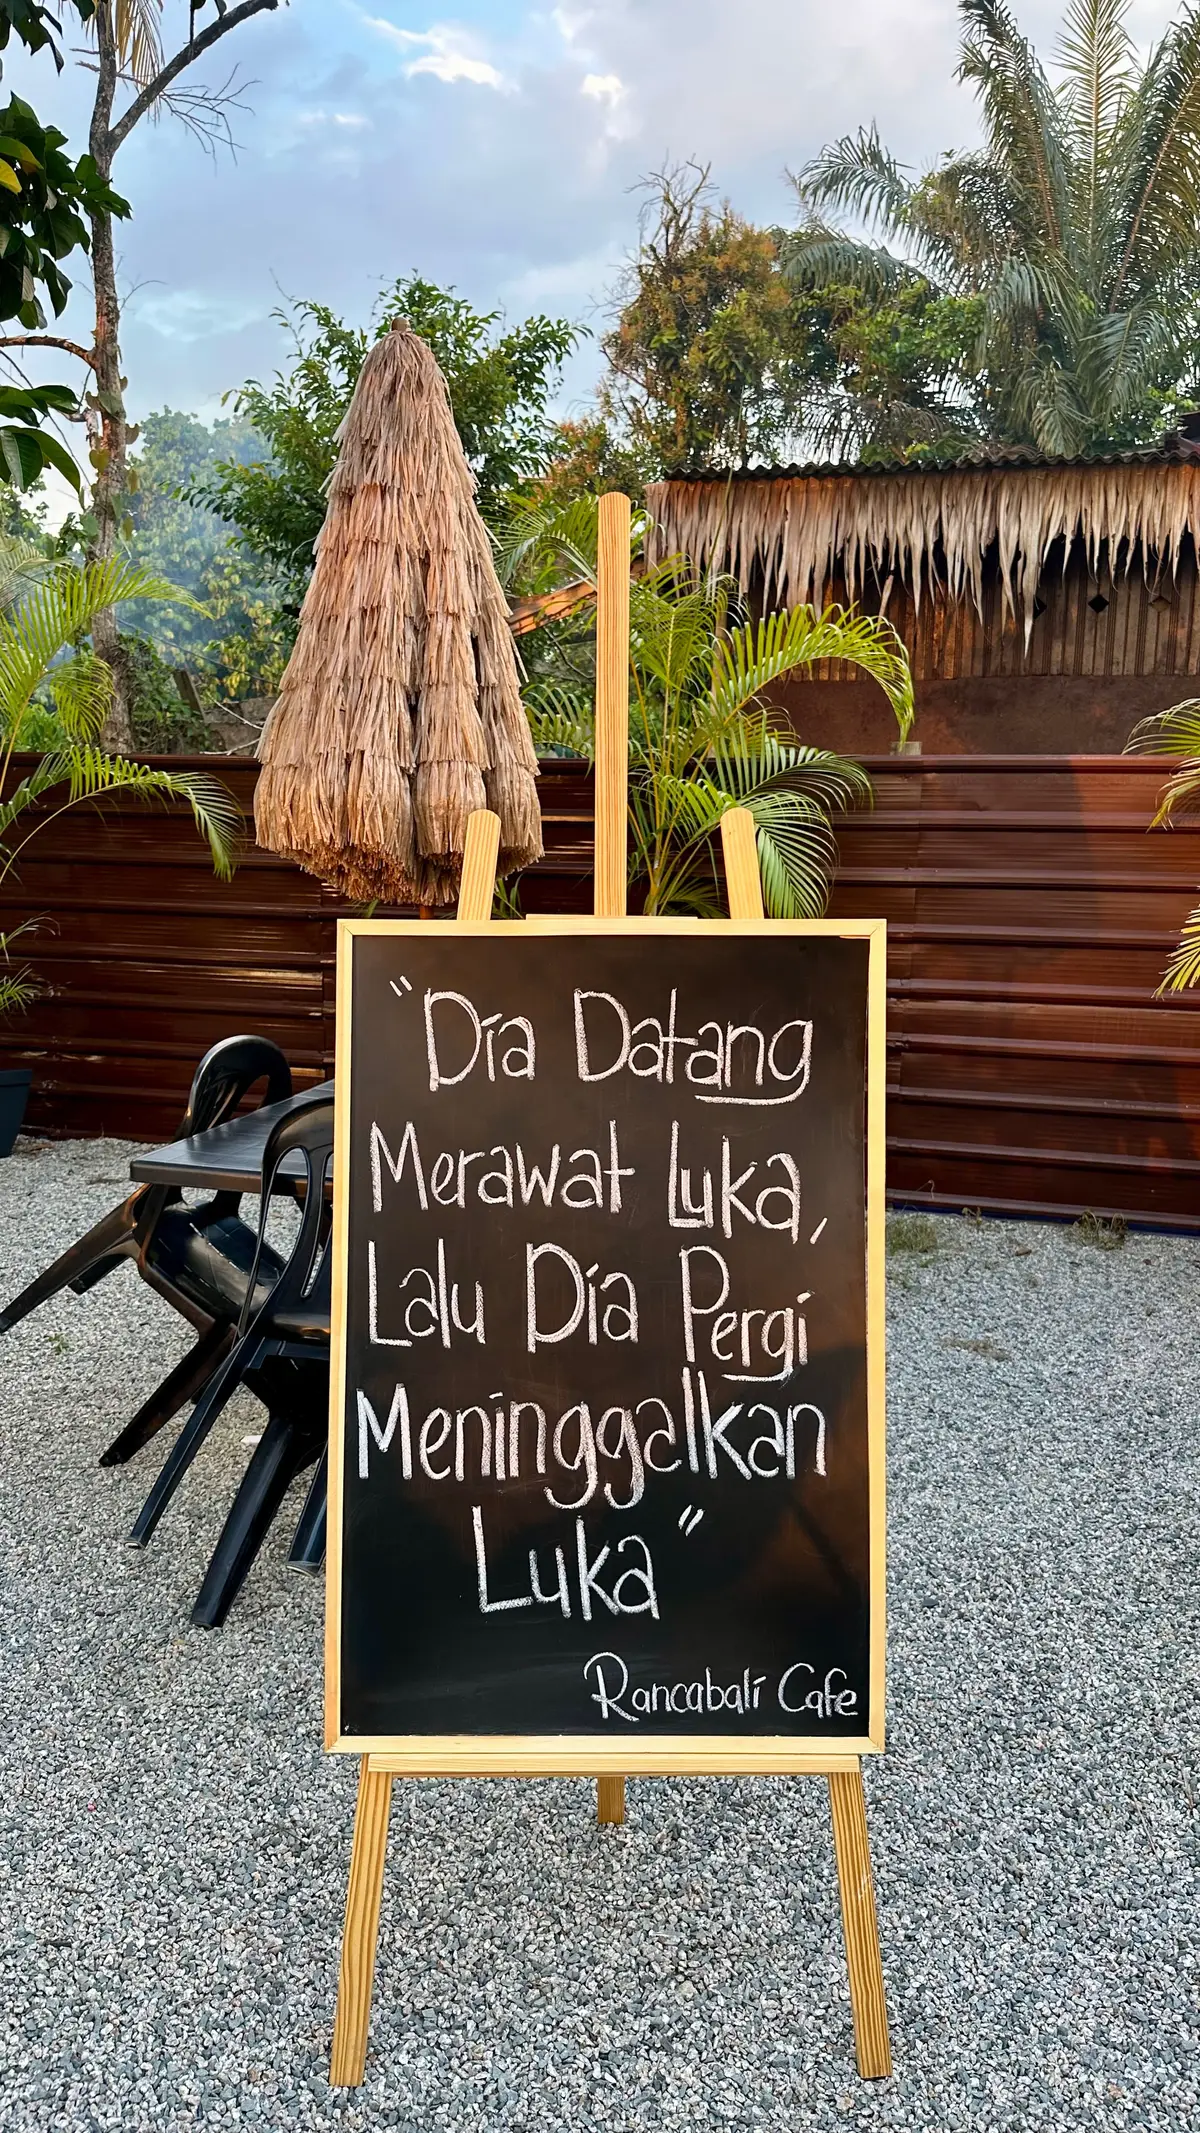 "Dia Datang
Merawat Luka,
Lalu Dia Pergi
Meninggalkan
Luka"
Rancabali Cafe